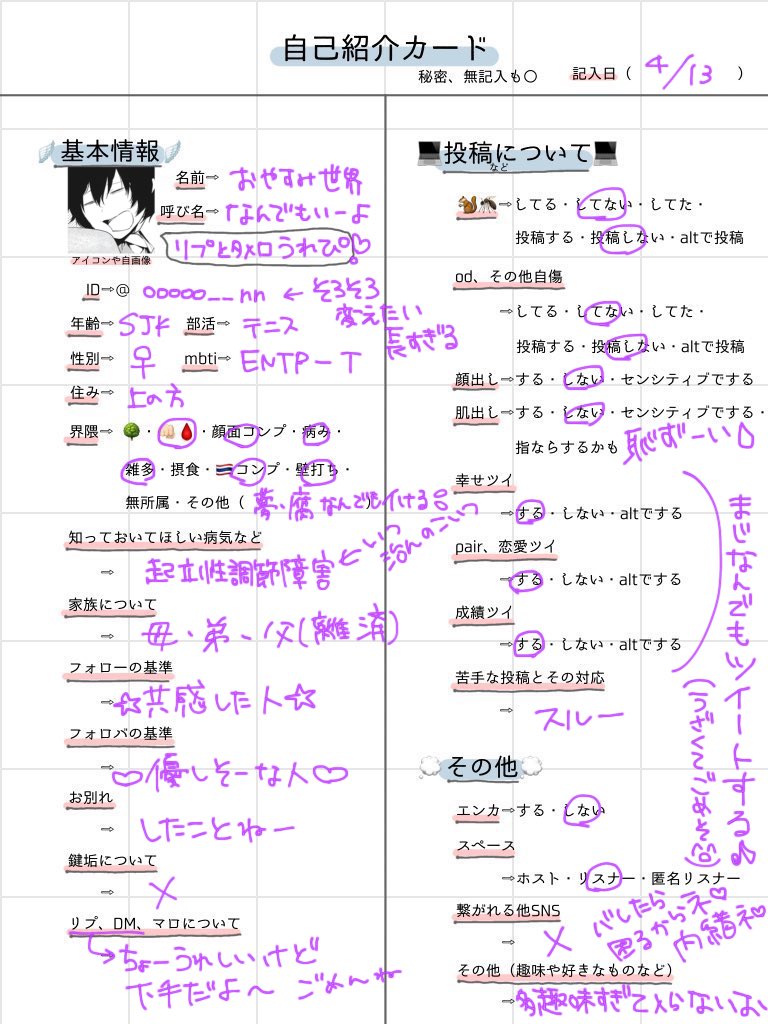 自己紹介カード
秘密、無記入も〇
記入日( 4/13 )
基本情報
アイコンや自画像
名前⇨ おやすみ世界
呼び名⇨ なんでもいーよ
リプとタメロうれぴ♡
ID⇨@ ooooo__nn ← そろそろ変えたい 長すぎる
年齢⇨ SJK 部活⇨ テニス
性別⇨ ♀ mbti⇨ ENTP-T
住み⇨ 上の方
界隈⇨ 🌳・👊🏻🩸・顔面コンプ・病み・
雑多・摂食・🇹🇭コンプ・壁打ち・
無所属・その他( 夢、腐 なんでもイける
知っておいてほしい病気など
⇨ 起立性調節障害 ← いつ治んのこいつ
家族について
⇨ 母・弟、父(離済)
フォローの基準
⇨ ☆共感した人☆
フォロバの基準
⇨ ♡優しそーな人♡
お別れ
⇨ したことねー
鍵垢について
⇨ ×
リプ、DM、マロについて
⇨ ちょーうれしいけど
下手だよ〜 ごめんね
💻投稿について💻
など
🐿️🦟⇨してる・してない・してた・
投稿する・投稿しない・altで投稿
od、その他自傷
⇨してる・してない・してた・
投稿する・投稿しない・altで投稿
顔出し⇨する・しない・センシティブでする
肌出し⇨する・しない・センシティブでする・
指ならするかも 恥ずーい
幸せツイ
⇨する・しない・altでする
pair、恋愛ツイ
⇨する・しない・altでする
成績ツイ
⇨する・しない・altでする
まじなんでもツイートする♪
(うざくてごめそ)
苦手な投稿とその対応
⇨ スルー
💭その他💭
エンカ⇨する・しない
スペース
⇨ホスト・リスナー・匿名リスナー
繋がれる他SNS
⇨ × バレたら困るからネ♡ 内緒ネ♡
その他(趣味や好きなものなど)
⇨多趣味すぎて入らないよ